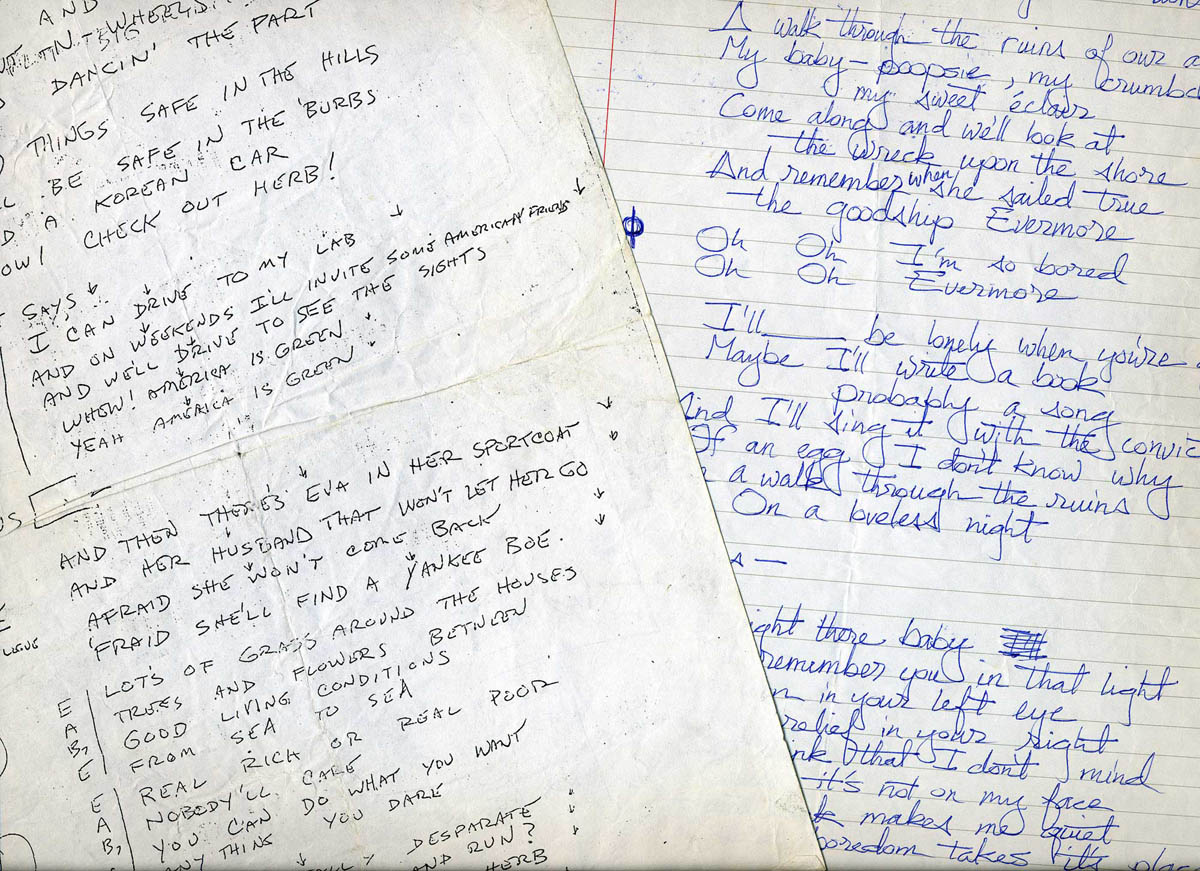 AND
DANCIN' THE PART
THINGS SAFE IN THE HILLS
BE SAFE IN THE 'BURBS
A KOREAN CAR
CHECK OUT HERB!
SAYS
I CAN DRIVE TO MY LAB
AND ON WEEKENDS I'LL INVITE SOME AMERICAN FRIENDS
AND WE'LL DRIVE TO SEE THE SIGHTS
WHEW! AMERICA IS GREEN
YEAH AMERICA IS GREEN
AND THEN THERE'S EVA IN HER SPORTCOAT
AND HER HUSBAND THAT WON'T LET HER GO
AFRAID SHE WON'T COME BACK
'FRAID SHE'LL FIND A YANKEE BOE.
LOTS OF GRASS AROUND THE HOUSES
TREES AND FLOWERS BETWEEN
GOOD LIVING CONDITIONS
FROM SEA TO SEA
E
A
B,
E
REAL RICH OR REAL POOR
NOBODY'LL CARE
YOU CAN DO WHAT YOU WANT
ANY THING YOU DARE
E
A
B,
DESPARATE
AND RUN?
HERB
A walk through the ruins of our
My baby-poopsie, my
my sweet éclair
Come along and we'll look at
the wreck upon the shore
And remember when she sailed true
the goodship Evermore
Oh Oh I'm so bored
Oh Oh Evermore
I'll____ be lonely when you're
Maybe I'll write a book
Probaply a song
And I'll sing it with the convic
Of an egg I don't know why
a walk through the ruins
On a loveless night
s —
ight there baby
remember you in that light
in your left eye
relief in your right
nk that I don't mind
it's not on my face
makes me quiet
boredom takes it's plac